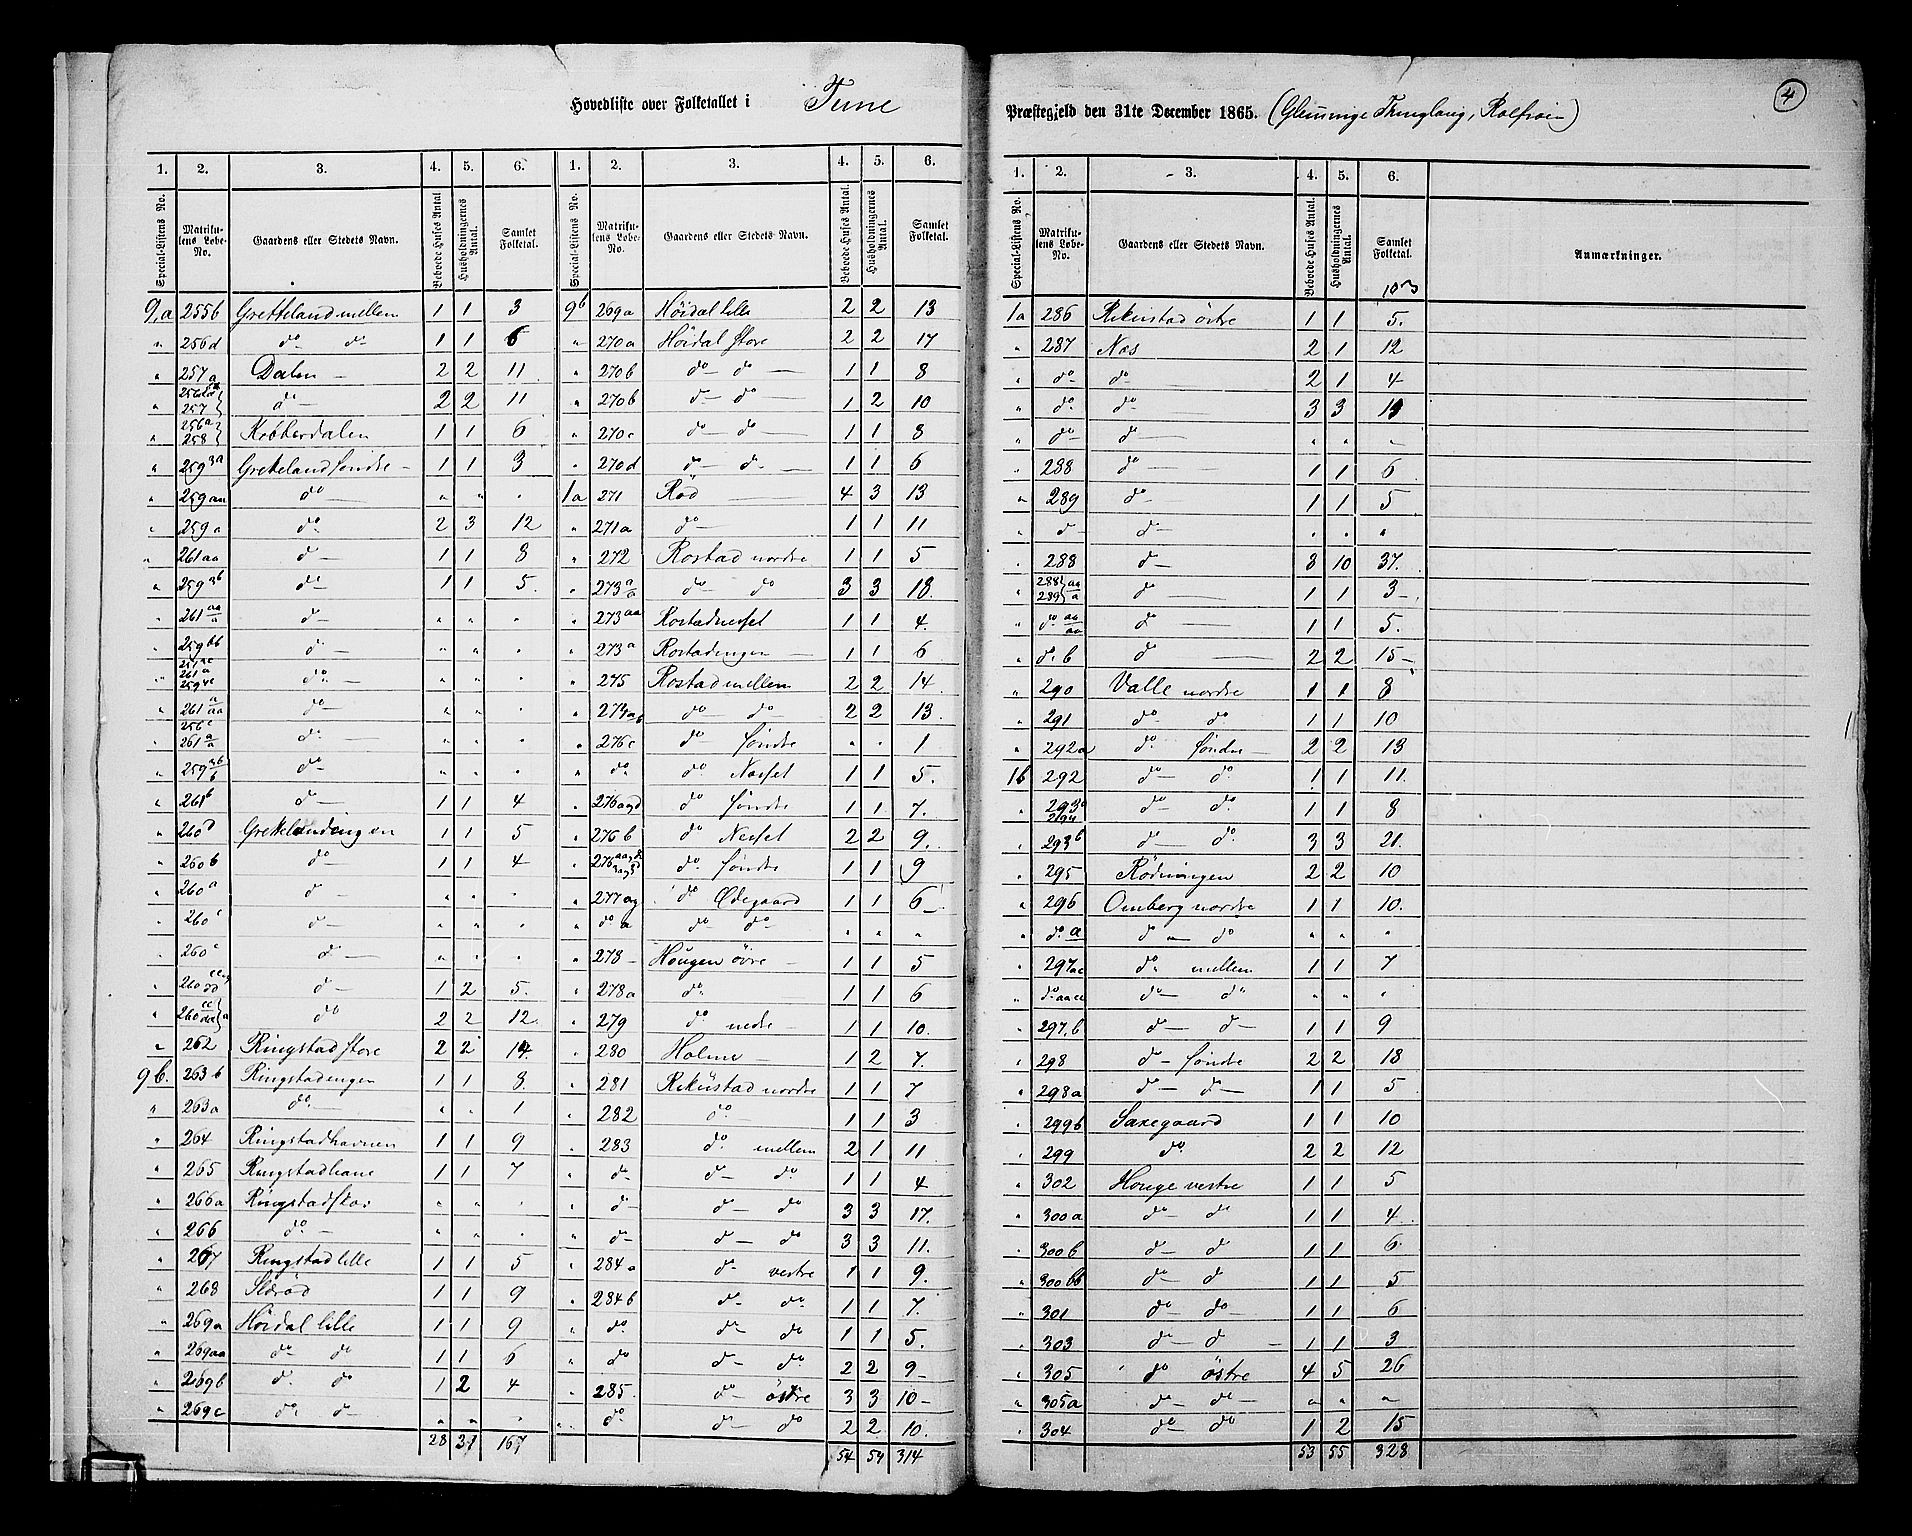 Hovedliste over Folketallet i Tune
1. 2. 3. 4. 5. 6. 1. 2. 3. 4. 5. 6.
Special-Listens No. Matrikulens Løbe-No. Gaardens eller Stedets Navn. Beboede Huses Antal Husholdningernes Antal. Samlet Folketal. Special-Listens No. Matrikulens Løbe-No. Gaardens eller Stedets Navn. Beboede Huses Antal. Husholdningernes Antal. Samlet Folketal.
9,a 255b Gretteland mellem 1 1 3 9b 269a Höidal lille 2 2 13
" 256d do do 1 1 6 " 270a Höidal store 2 2 17
" 257a Dalen — 2 2 11 " 270b do do — 1 1 8
" 257 do — 2 2 11 " 270b do — do — 1 2 10
" 256a 258 1 1 6 " 270c do — do — 1 1 8
" 259 3a Grekeland søndre — 1 1 3 " 270d do — do — 1 1 6
" 259aa do — " " " 1a 271 Röd — 4 3 13
" 259a do 2 3 12 " 271a do — 1 1 11
" 261aa do — 1 1 8 " 272 Rostad nordre 1 1 5
" 259 3b do — 1 1 5. " 273 a/a do — do 3 3 18.
" 261 aa/a do — " " " " 273aa Rostadnesset 1 1 4.
" 259bb do — " " " " 273a Rostadengen — 1 1 6
" do — " " " " 275 Rostad mellem 2 2 14
" 261 a/aa do — " " " " do — do — 2 2 13.
" 261 a/a do — " " " " 276c do søndre " " 1
" do — " " " " do do Nesset 1 1 5.
" 261b do — 1 1 4 " do søndre 1 1 7.
" 260d Grekelandengen 1 1 5 " 276b do Nesset 2 2 9.
" 260b do 1 1 4 " do søndre 1 1 9
" 260a do — " " " " 277ag do Ødegaard 1 1 6 —
" 260c do — " " " " do a do do " " "
" 260c do — " " " " 278 — Hougen övre — 1 1 5
" do — 1 2 5. " 278a do 1 1 6
" do 2 2 12. " 279 do nedre — 1 1 10.
" 262 Ringstad store 2 2 14 " 280 Holme — 1 2 7.
9b. 263b Ringstadengen 1 1 8 " 281 Rekustad nordre 1 1 7
" 263a do — " " 1 " 282 do — 1 1 3
" 264 Ringstadhavnen 1 1 9 " 283 do mellem 2 1 11
" 265 1 1 7 " do do — do 1 1 4
" 266a " " " " do — do — do 3 3 17.
" 266 do — " " " " do — do — do 3 3 11.
" 267 Ringstad lille 1 1 5 " 284a do — vestre 1 1 9.
" 268 1 1 9 " 284b do — do 1 1 7.
" 269a Höidal lille 1 1 9 " do do — do 1 1 5.
" 269aa do do 1 1 6 " do do — do 2 2 9
" 269b do do 1 2 4 " 285. do — östre 3 3 10 —
" 269c do do — " " " " do do — do 2 2 10.
28 31 167 54 59 314
4
Præstegjeld den 31te December 1865. (Glemminge Thinglaug, Rolfsøen)
1. 2. 3. 4. 5. 6.
Special-Listens No. Matrikulens Løbe-No. Gaardens eller Stedets Navn. Beboede Huses Antal. Husholdningernes Antal. Samlet Folketal. Anmærkninger.
1a 286 Rekustad östre 1 1 5.
" 287 Næs 2 1 12
" do do — 2 1 4
" do do — 3 3 11
" do — do — " " "
" 288 do — 1 1 6
" 289 do — 1 1 5
" do do — " " "
" 288 do — 8 10 37.
" 288 aa 289 a do — 1 1 3 —
" do aa/aa do — 1 1 5.
" do b do — 2 2 15 —
" 290 Valle nordre 1 1 8
" 291 do do 1 1 10
" 292a do søndre — 2 2 13
1b 292 do — do 1 1 11.
" do — do 1 1 8
" 293b do — do 3 3 21.
" 295 Rödningen 2 2 10
" 296 Omberg nordre 1 1 10.
" do a do — do " " "
" 297ac do mellem 1 1 7
" do aacc do — do " " "
" 297,b do — do — 1 1 9
" 298 do — søndre 2 2 18
" 298a do — do — 1 1 5
" 299b Saxegaard 1 1 10
" 299 do 2 2 12
" 302 Houge vestre 1 1 5
" 300a do — do 1 1 4.
" 300b do — do 1 1 6.
" 300bb do — do 1 1 5
" 301 do — do — 1 1 6
" 303 do — do — 1 1 3
" 305 do östre 4 5 26
" 305a do — do — " " "
" 304 do — do 1 2 15
53 55 328